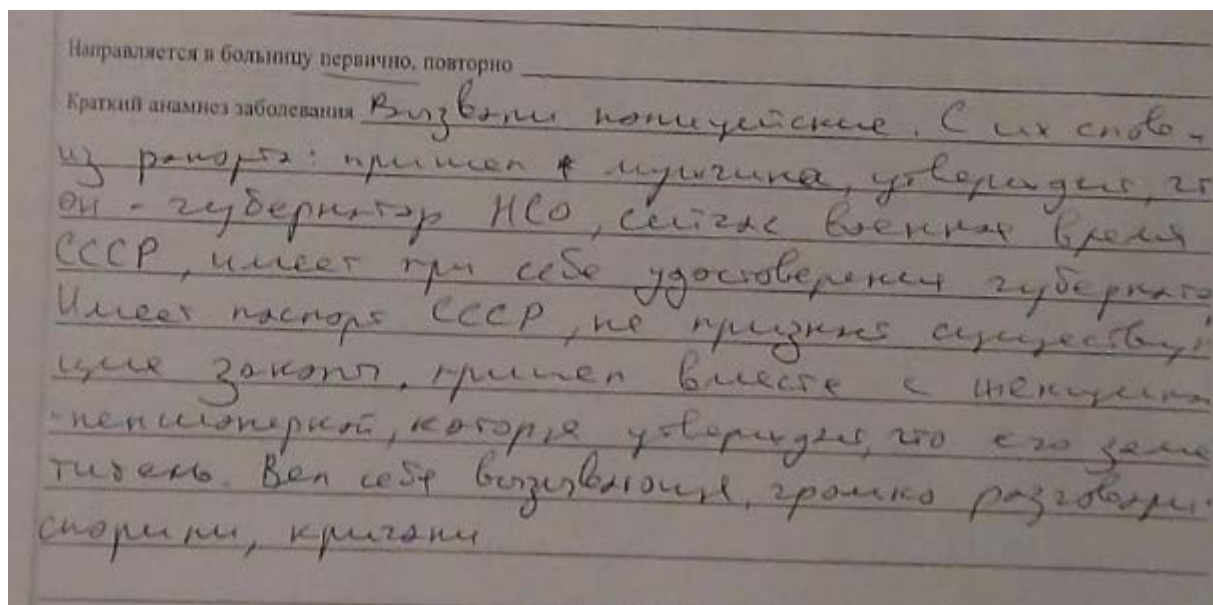 Направляется в больницу первично, повторно
Краткий анамнез заболевания Вызвали полицейские. С их слов -
из рапорта: пришел мужчина, утверждает, чт
он - губернатор НСО, сейчас военное время
СССР, имеет при себе удостоверения губернато
Имеет паспорт СССР, не признает существую
щие законы, пришел вместе с женщина
-пенсионеркой, которая утверждает, что его заме
титель. Вел себя вызывающе, громко разговари
спорили, кричали